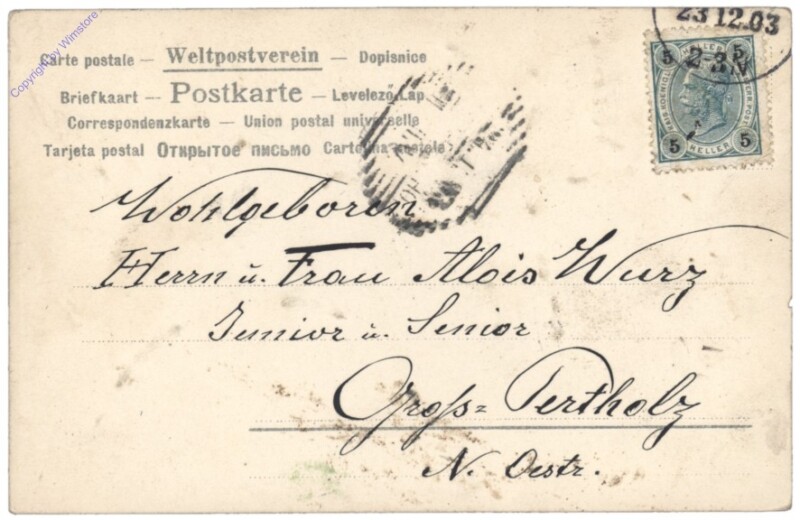 Copyright by Wimstore
23 12.03
2-3N
Carte postale — Weltpostverein — Dopisnice
Briefkaart — Postkarte — Levelező-Lap
Correspondenzkarte — Union postal universelle
Tarjeta postal Открытое письмо Cartolina postale
5 HELLER 5
5 HELLER 5
Wohlgeboren
Herrn u. Frau Alois Wurz
Junior u. Senior
Gross= Pertholz
N. Oestr.